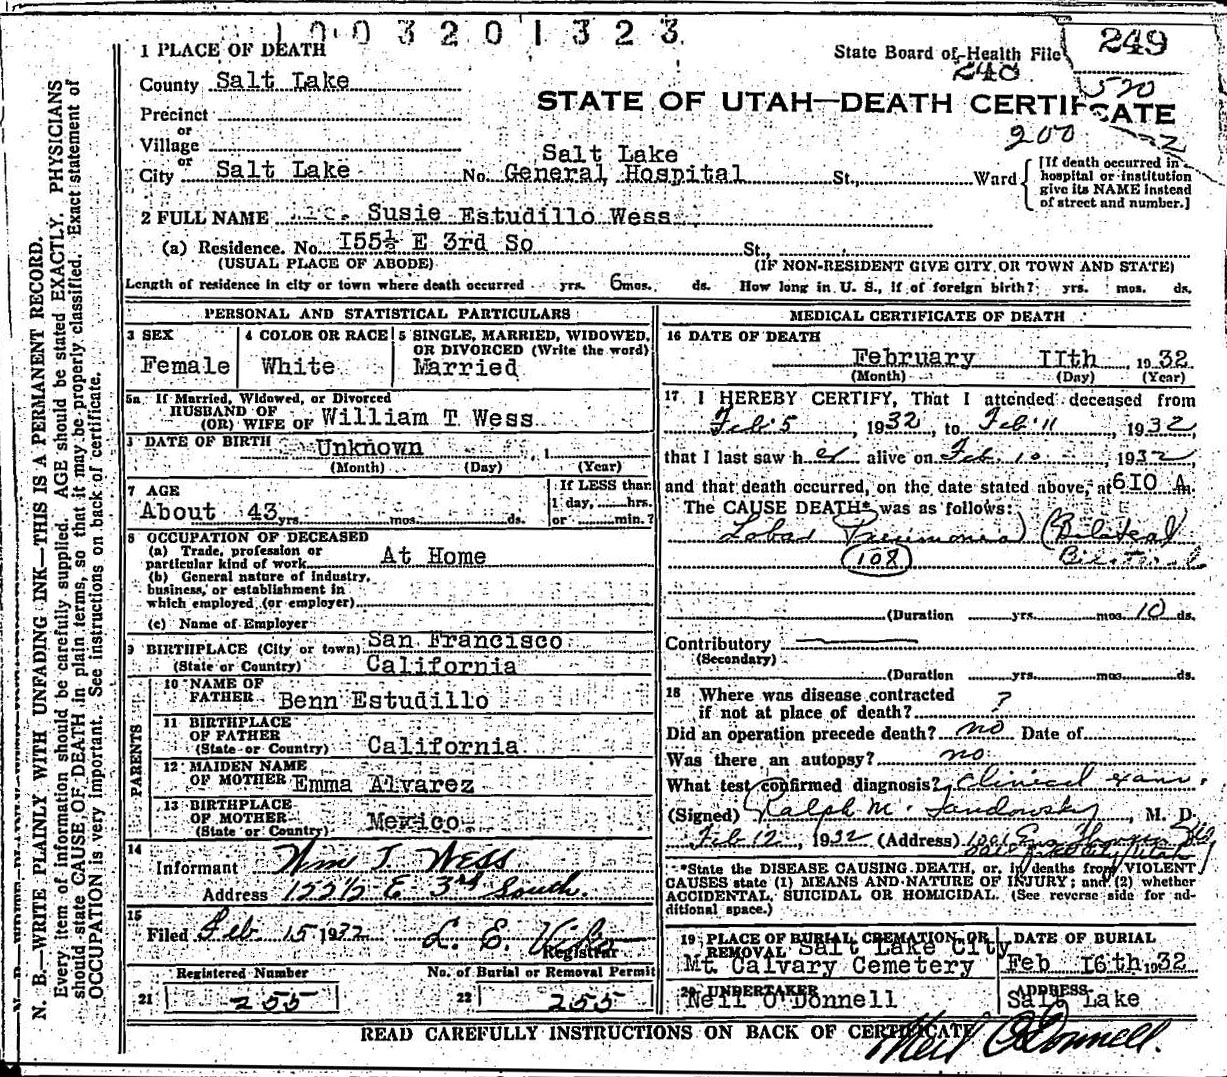 1003201323
1 PLACE OF DEATH
State Board of Health File
249
County Salt Lake
240
520
STATE OF UTAH—DEATH CERTIFICATE
Precinct
or
Village
200
or
City Salt Lake No. Salt Lake General Hospital St., Ward
[If death occurred in hospital or institution give its NAME instead of street and number.]
2 FULL NAME Susie Estudillo Wess
(a) Residence. No. 155½ E 3rd So St.,
(USUAL PLACE OF ABODE) (IF NON-RESIDENT GIVE CITY OR TOWN AND STATE)
Length of residence in city or town where death occurred yrs. 6 mos. ds. How long in U. S., if of foreign birth? yrs. mos. ds.
PERSONAL AND STATISTICAL PARTICULARS
3 SEX
Female
4 COLOR OR RACE
White
5 SINGLE, MARRIED, WIDOWED, OR DIVORCED (Write the word)
Married
5a If Married, Widowed, or Divorced
HUSBAND OF
(OR) WIFE OF William T Wess
DATE OF BIRTH Unknown
(Month) (Day) (Year)
7 AGE
About 43 yrs. mos. ds.
If LESS than
1 day, hrs.
or min.?
8 OCCUPATION OF DECEASED
(a) Trade, profession or
particular kind of work At Home
(b) General nature of Industry,
business, or establishment in
which employed (or employer)
(c) Name of Employer
9 BIRTHPLACE (City or town) San Francisco
(State or Country) California
PARENTS
10 NAME OF
FATHER Benn Estudillo
11 BIRTHPLACE
OF FATHER
(State or Country) California
12 MAIDEN NAME
OF MOTHER Emma Alvarez
13 BIRTHPLACE
OF MOTHER
(State or Country) Mexico
14
Informant Wm T. Wess
Address 155½ E 3rd South.
15
Filed Feb 15 1932 L. E.
Registrar
Registered Number No. of Burial or Removal Permit
21 255 22 255
MEDICAL CERTIFICATE OF DEATH
16 DATE OF DEATH
February 11th 1932
(Month) (Day) (Year)
17 I HEREBY CERTIFY, That I attended deceased from
Feb 5, 1932, to Feb 11, 1932,
that I last saw her alive on Feb. 10, 1932,
and that death occurred, on the date stated above, at 610 A.
The CAUSE DEATH* was as follows:
Lobar Pneumonia (Bilateral
108 Bilateral
(Duration yrs. mos. 10 ds.
Contributory
(Secondary)
(Duration yrs. mos. ds.
18 Where was disease contracted
if not at place of death? ?
Did an operation precede death? no Date of
Was there an autopsy? no
What test confirmed diagnosis? clinical exam.
(Signed) Ralph M. Sandowsky, M. D.
Feb 12, 1932 (Address) 1001
Salt Lake City Utah
*State the DISEASE CAUSING DEATH, or, in deaths from VIOLENT
CAUSES state (1) MEANS AND NATURE OF INJURY; and (2) whether
ACCIDENTAL, SUICIDAL OR HOMICIDAL. (See reverse side for ad-
ditional space.)
19 PLACE OF BURIAL CREMATION OR
REMOVAL Salt Lake City
Mt. Calvary Cemetery
DATE OF BURIAL
Feb 16th 1932
20 UNDERTAKER
Neil O'Donnell
ADDRESS
Salt Lake
READ CAREFULLY INSTRUCTIONS ON BACK OF CERTIFICATE
Neil O'Donnell.
N. B.—WRITE PLAINLY WITH UNFADING INK—THIS IS A PERMANENT RECORD.
Every item of information should be carefully supplied. AGE should be stated EXACTLY. PHYSICIANS
should state CAUSE OF DEATH in plain terms, so that it may be properly classified. Exact statement of
OCCUPATION is very important. See instructions on back of certificate.